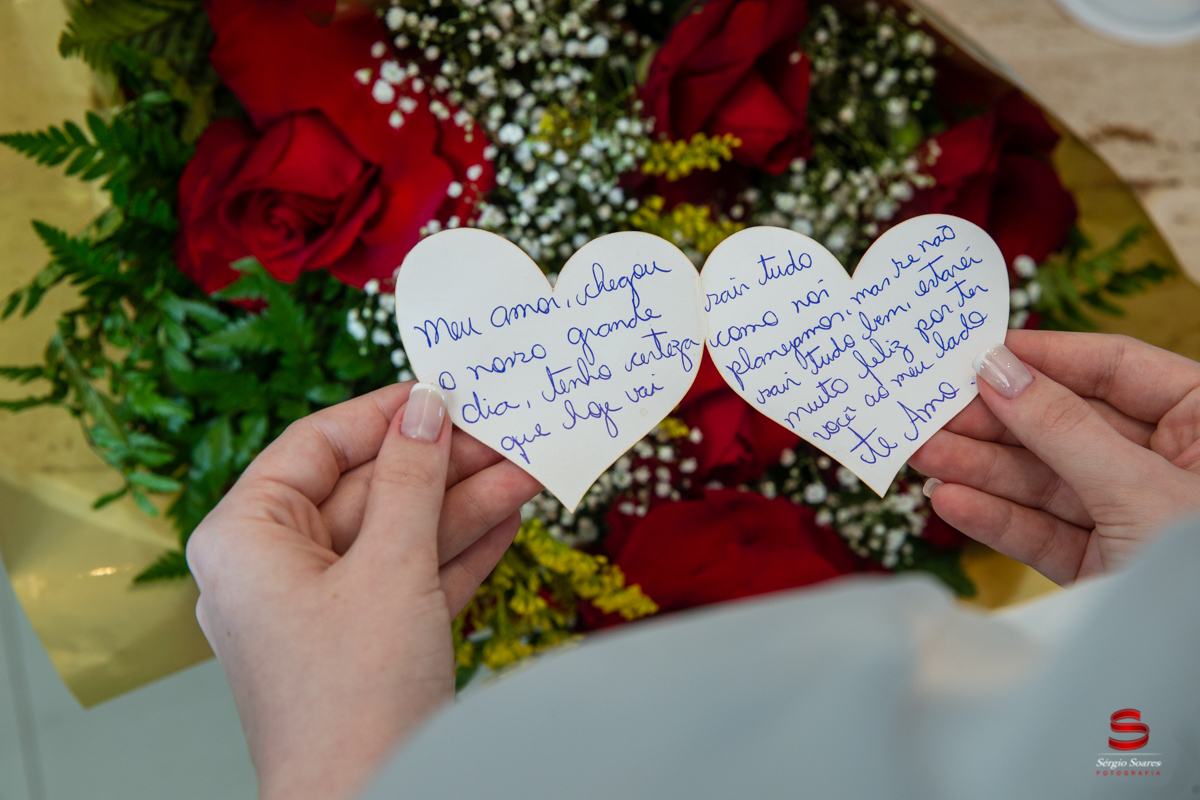 Meu amor, chegou
o nosso grande
dia, tenho certeza
que hoje vai
sair tudo
como nós
planejamos, mas se não
sair tudo bem, estarei
muito feliz por ter
você ao meu lado
te Amo.
S
Sérgio Soares
FOTOGRAFIA